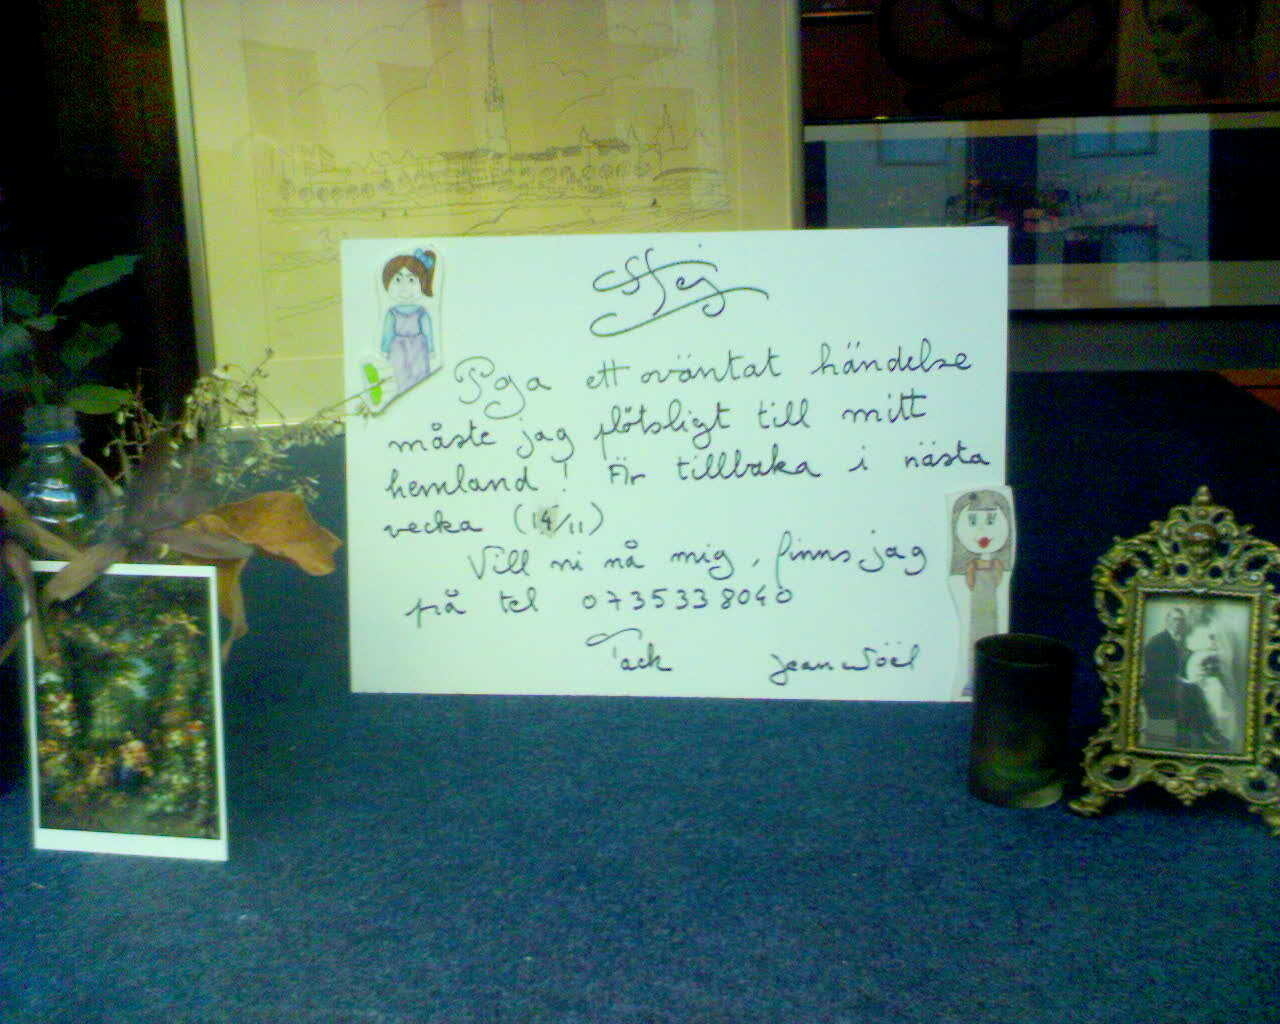 Hej
Pga ett oväntat händelse
måste jag plötsligt till mitt
hemland! Är tillbaka i nästa
vecka (14/11)
Vill ni nå mig, finns jag
på tel 0735338040
Tack jean Noël